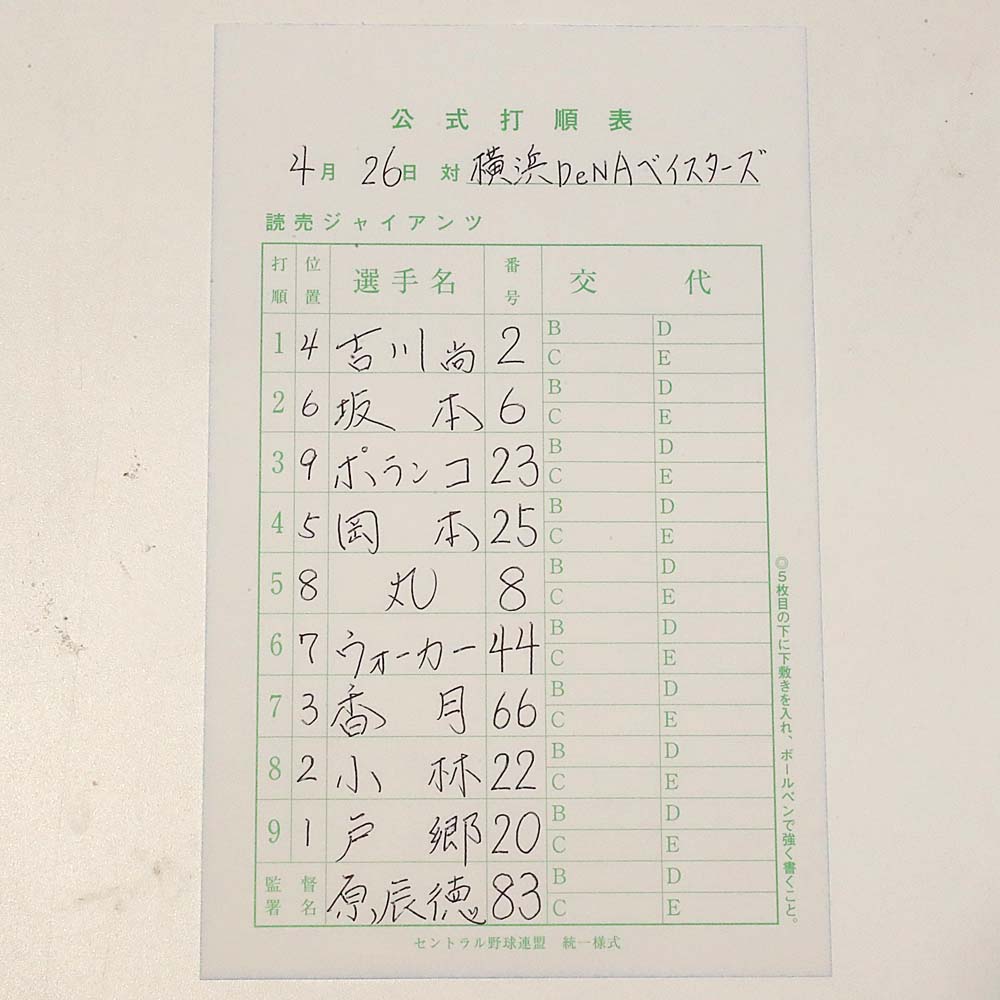 公式打順表
4月 26日 対 横浜DeNAベイスターズ
読売ジャイアンツ
打順 位置 選手名 番号 交代
1 4 吉川尚 2 B D C E
2 6 坂本 6 B D C E
3 9 ポランコ 23 B D C E
4 5 岡本 25 B D C E
5 8 丸 8 B D C E
6 7 ウォーカー 44 B D C E
7 3 香月 66 B D C E
8 2 小林 22 B D C E
9 1 戸郷 20 B D C E
監督署名 原辰徳 83 B D C E
セントラル野球連盟 統一様式
◎5枚目の下に下敷きを入れ、ボールペンで強く書くこと。